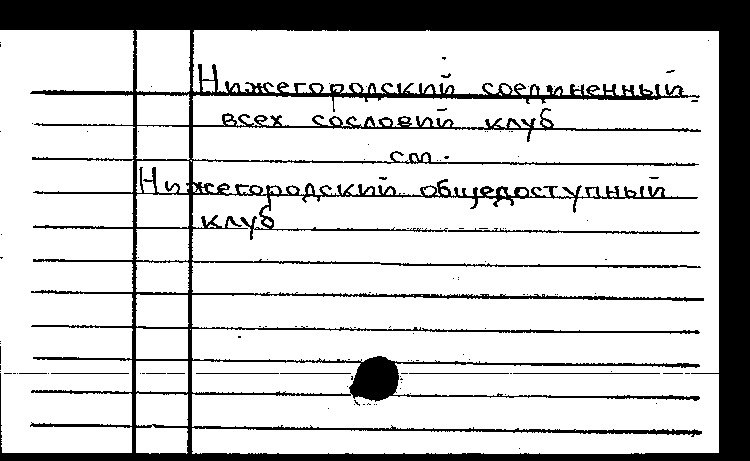 Нижегородский соединенный
всех сословий клуб
см.
Нижегородский общедоступный
клуб